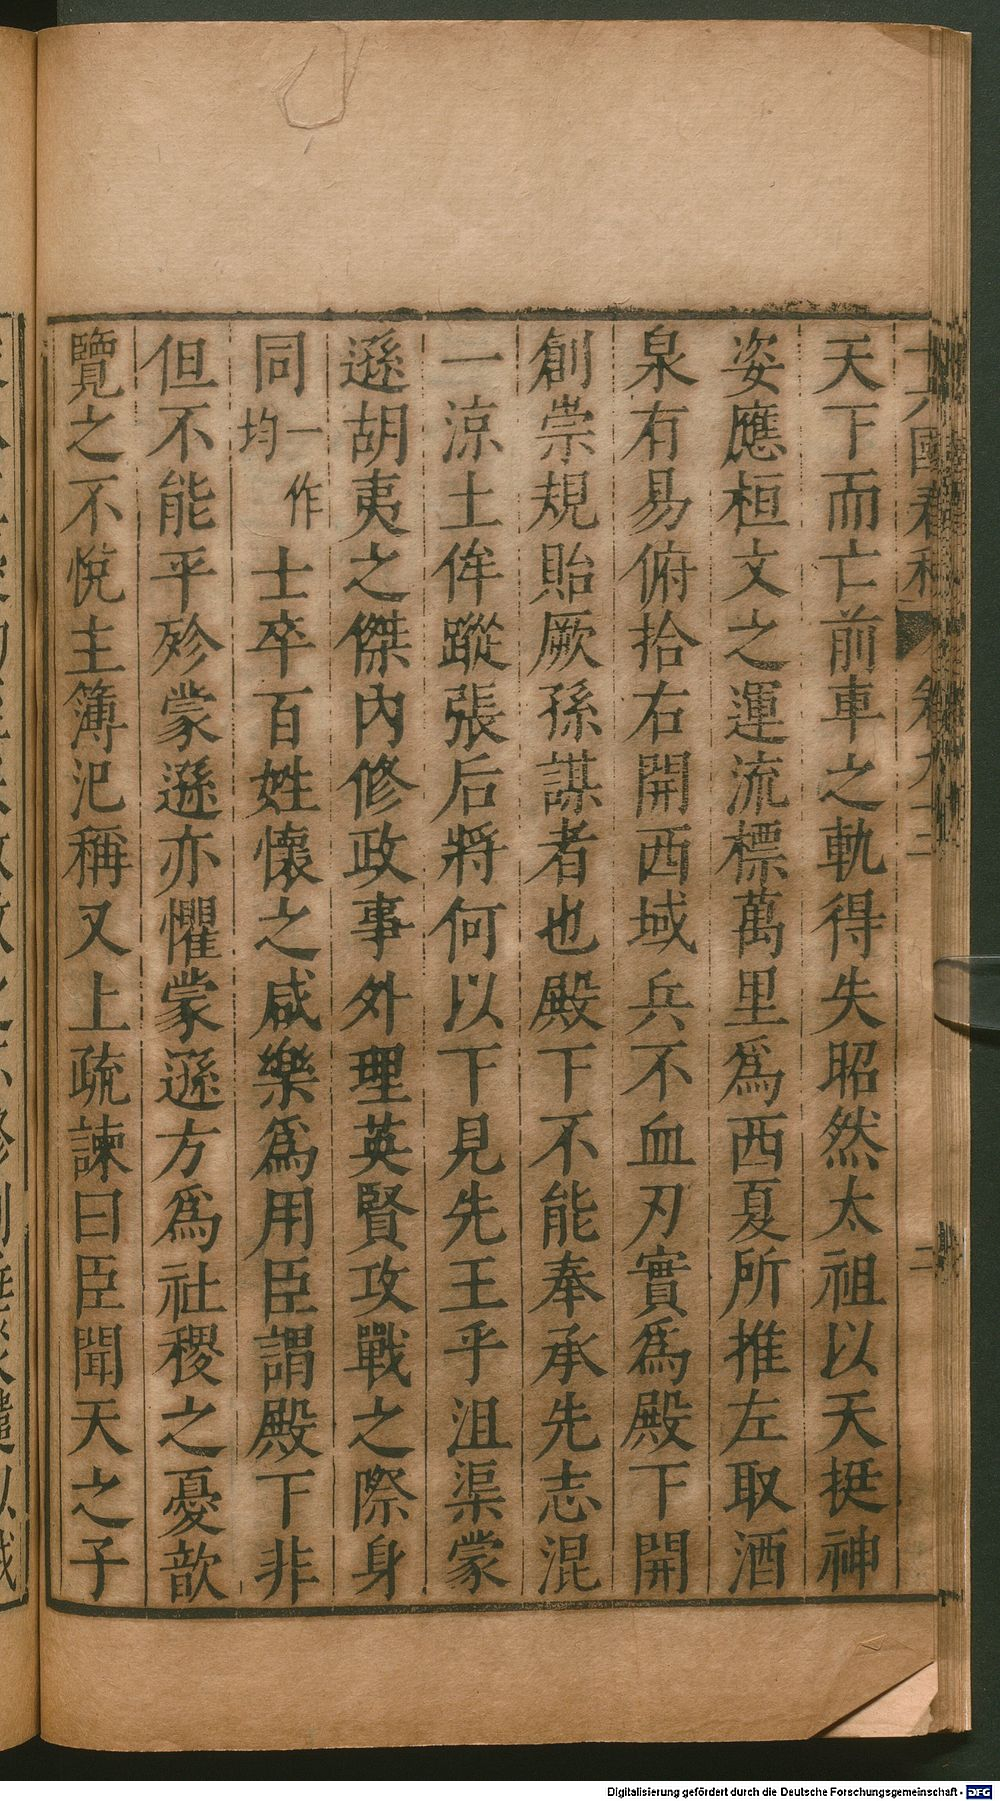 天下而亡前車之軌得失昭然太祖以天挺神
姿應桓文之運流標萬里為西夏所推左取酒
泉有易俯拾右開西域兵不血刃實為殿下開
創崇規貽厥孫謀者也殿下不能奉承先志混
一涼土侔蹤張后將何以下見先王乎沮渠蒙
遜胡夷之傑內修政事外理英賢攻戰之際身
同一作均士卒百姓懷之咸樂為用臣謂殿下非
但不能平殄蒙遜亦懼蒙遜方為社稷之憂歆
覽之不悅主簿氾稱又上疏諫曰臣聞天之子
十六國春秋 卷九三 二
Digitalisierung gefördert durch die Deutsche Forschungsgemeinschaft - DFG